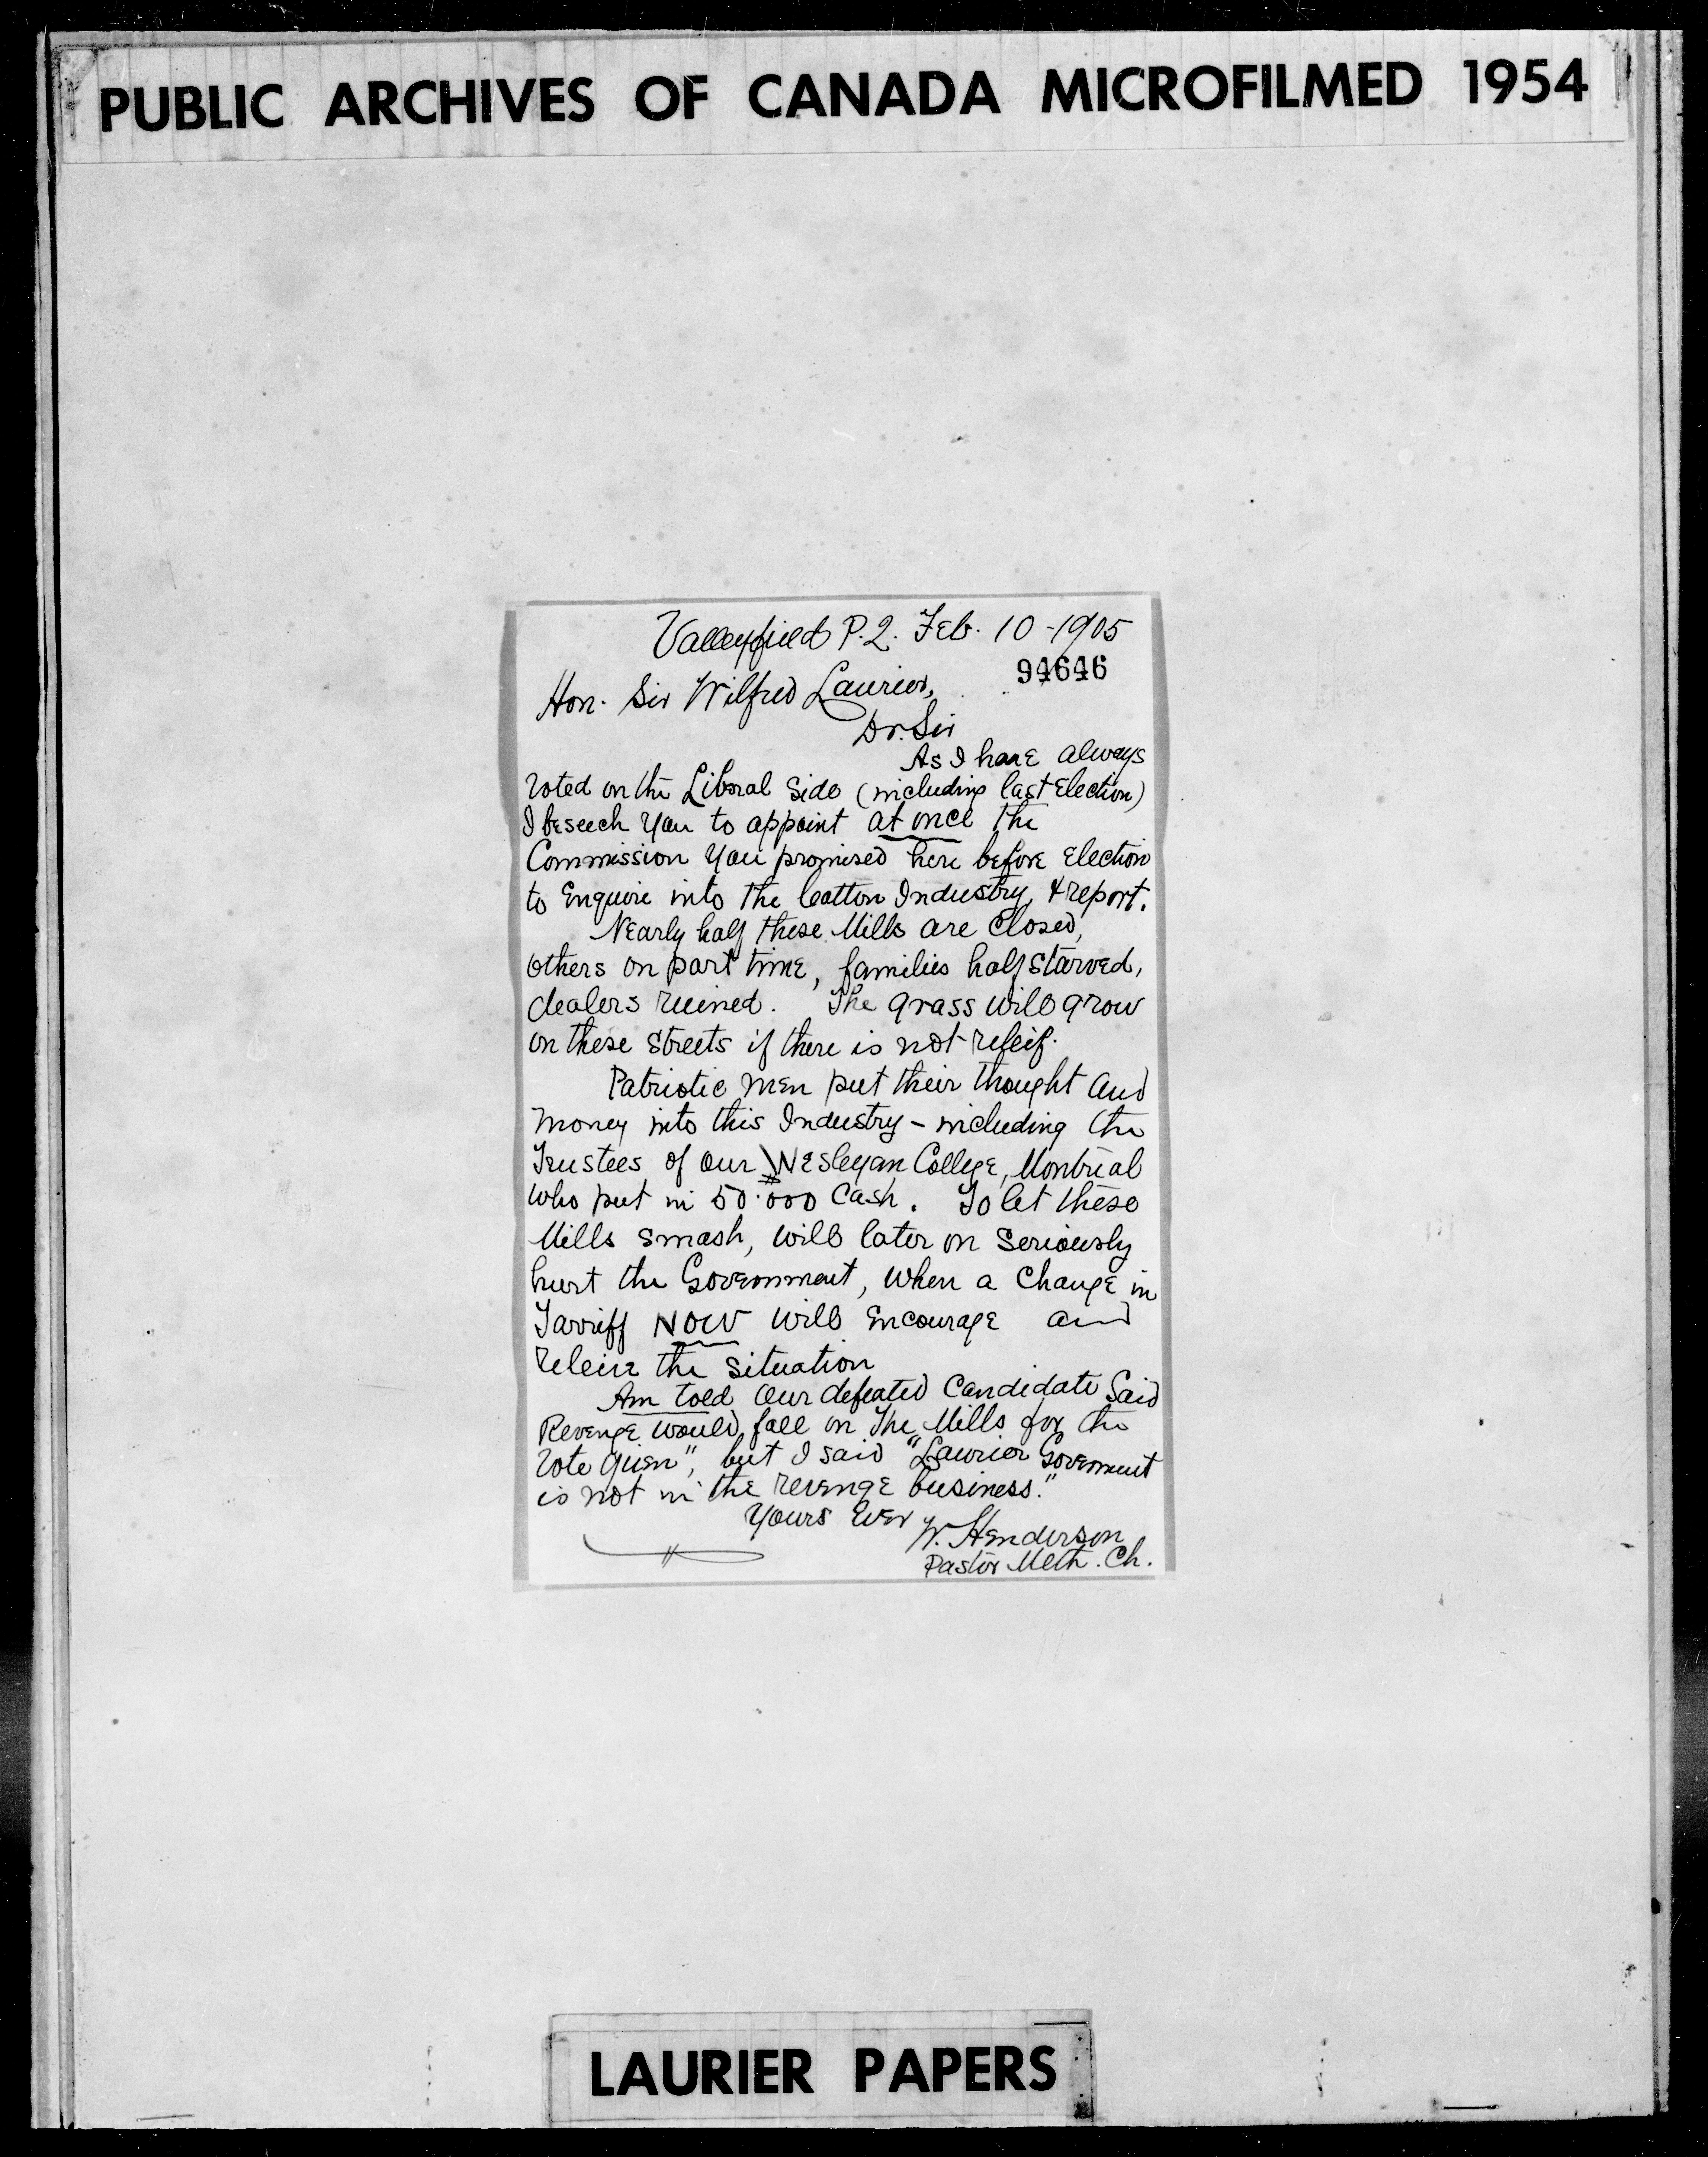 PUBLIC ARCHIVES OF CANADA MICROFILMED 1954
Valleyfield P.Q. Feb. 10-1905
94646
Hon. Sir Wilfred Laurier,
Dr. Sir
As I have always
voted on the Liberal Side (including last Election)
I beseech you to appoint at once the
Commission you promised here before Election
to Enquire into the Cotton Industry, & report.
Nearly half these Mills are closed,
others on part time, families half starved,
dealers ruined. The grass will grow
on these streets if there is not releif.
Patriotic men put their thought and
money into this Industry - including the
Trustees of our Wesleyan College, Montreal
who put in $50.000 Cash. To let these
Mills smash, will later on seriously
hurt the Government, when a change in
Tarriff NOW will Encourage and
releive the situation
Am told our defeated Candidate said
Revenge would fall on the Mills for the
vote given", but I said "Laurier Government
is not in the revenge business."
Yours Ever
W. Henderson
Pastor Meth. Ch.
LAURIER PAPERS